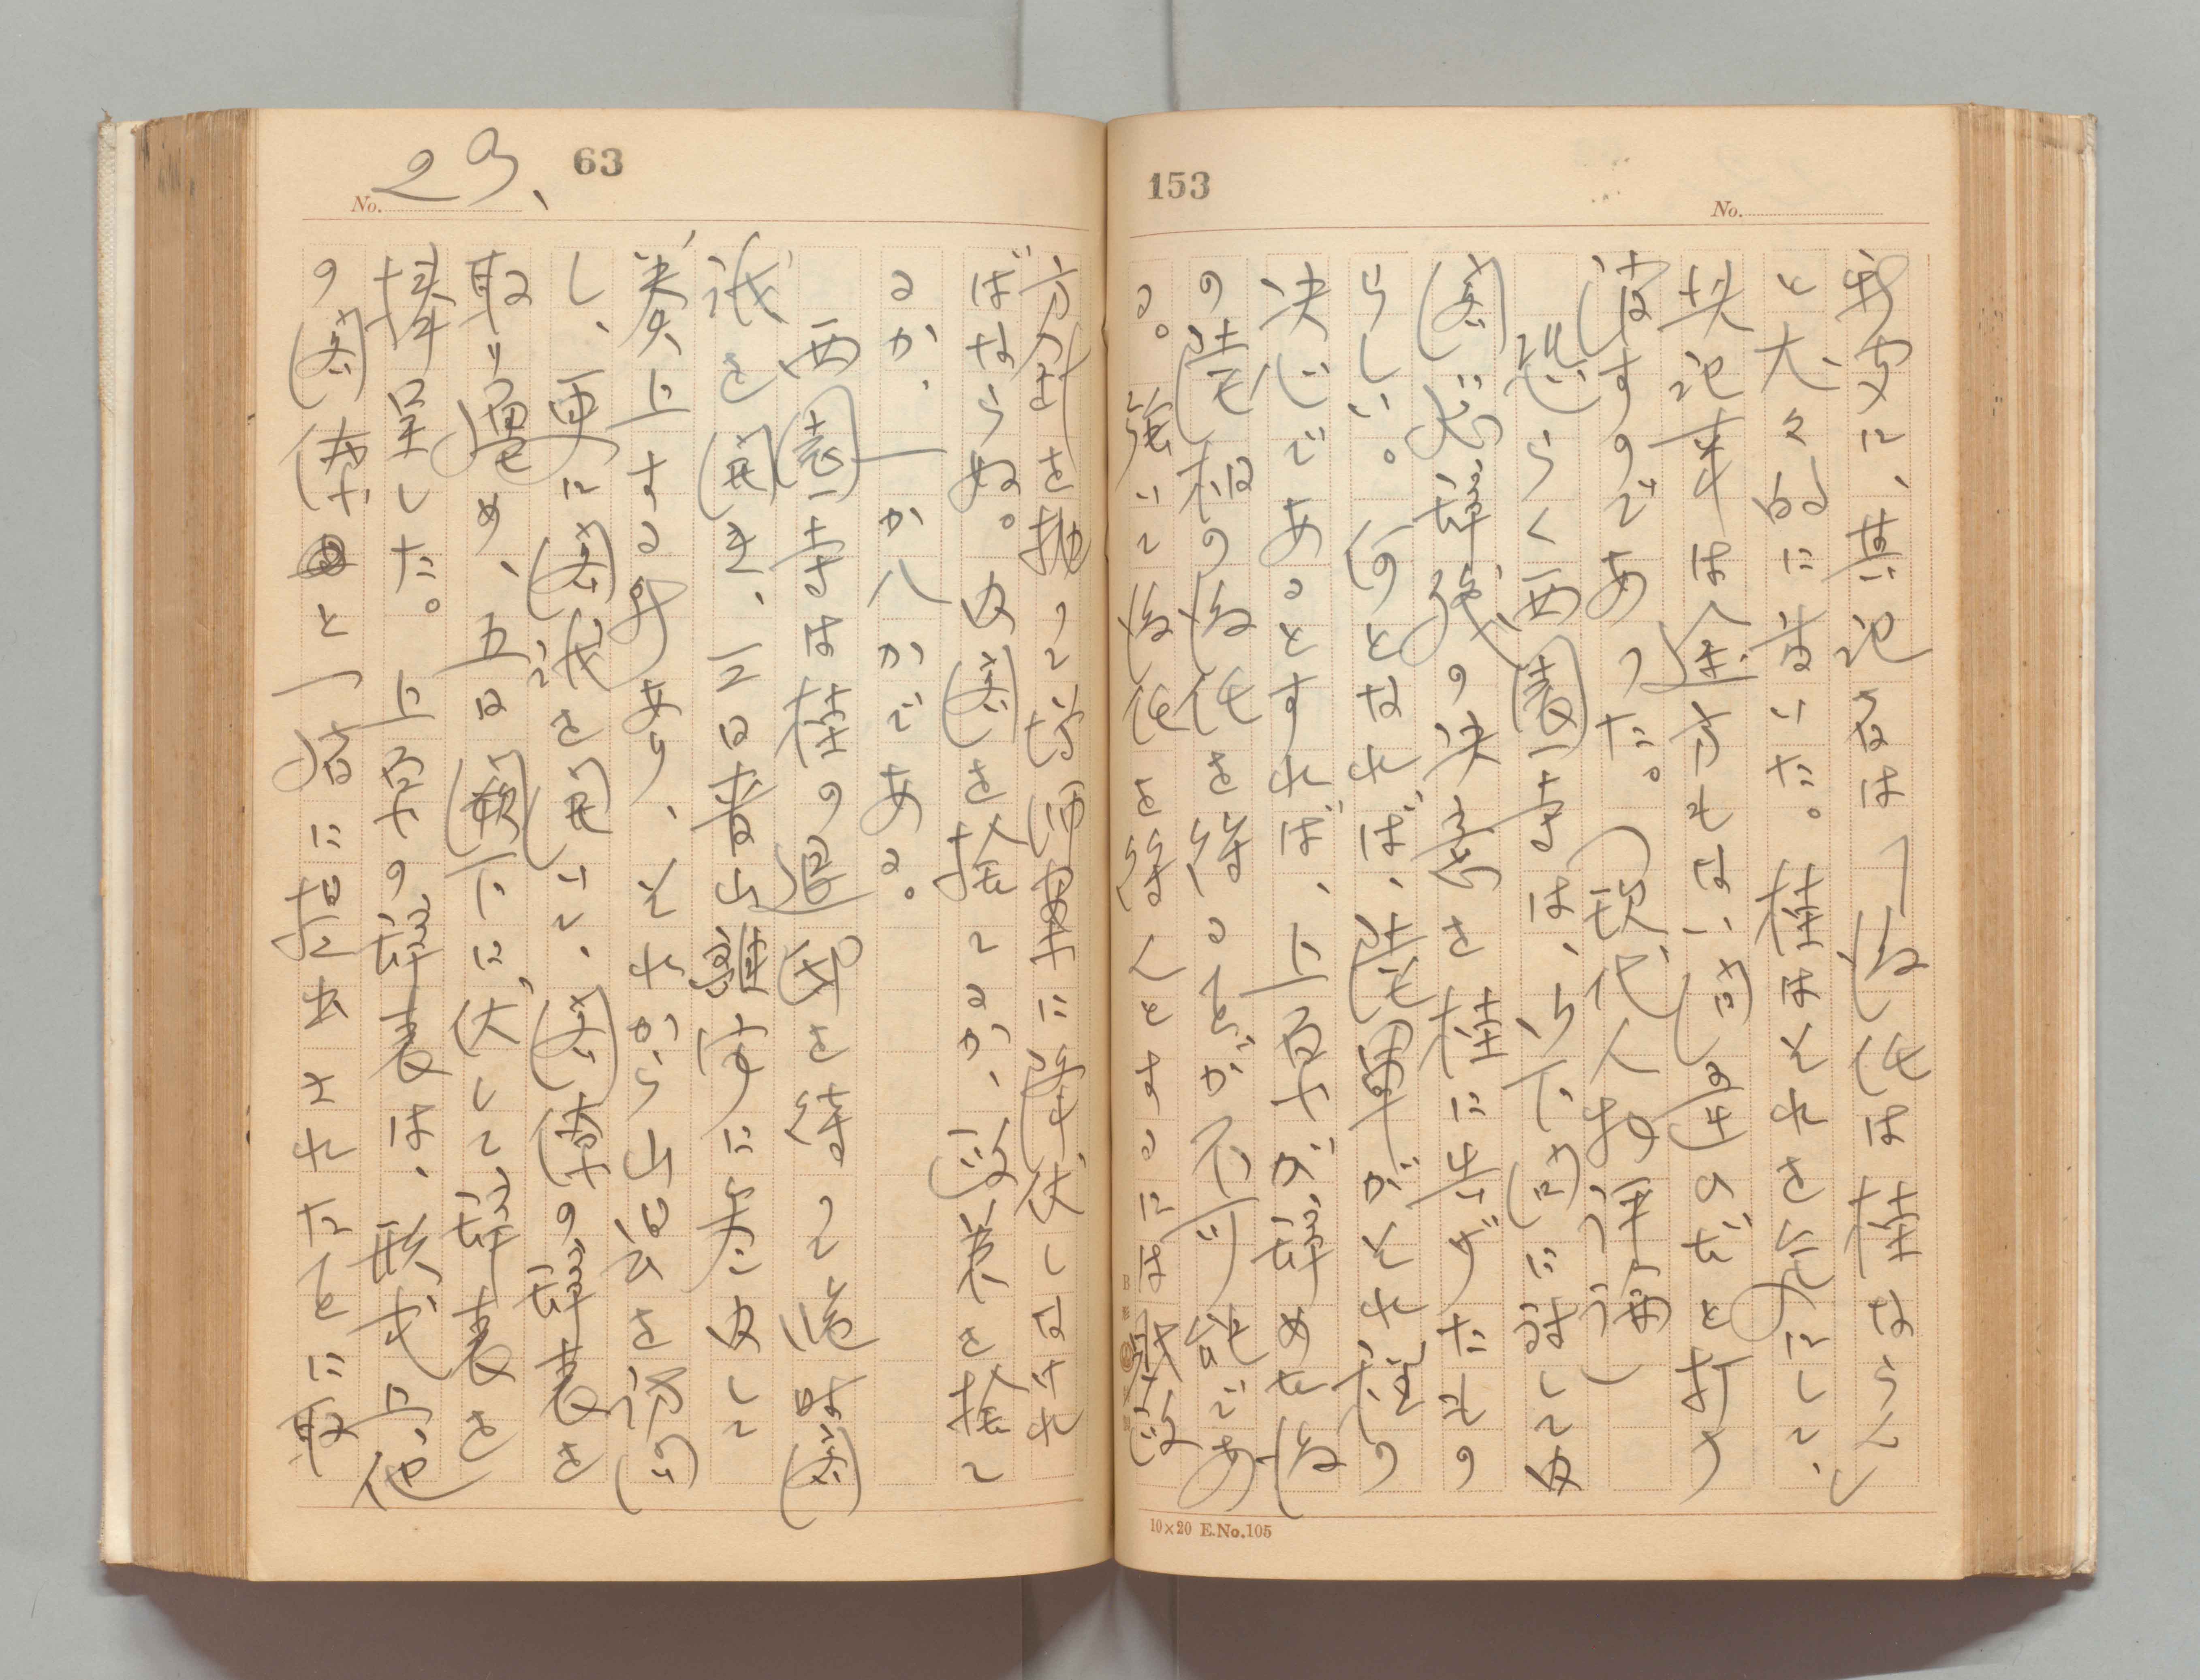 153
No.
に、某記者は「後任は桂ならん」
と大々的に書いた。桂はそれを気にして、
其記事は途方もない間違ひだと打ち
消すのであつた。(現代人物評論)
恐らく西園寺は、御下問に対して内
閣総辞職の決意を桂に告げたもの
らしい。何となれば、陸軍がそれ程の
決心であるとすれば、上原が辞めた後
の陸相の後任を得ることが不可能であ
る。強いて後任を得んとするには政
10×20 E.No.105
63
No. 29、
方針を抛つて増師案に降伏しなけれ
ばならぬ。内閣を捨てるか、政策を捨て
るか、一か八かである。
西園寺は桂の退邸を待つて臨時閣
議を開き、三日青山離宮に参内して
奏上する所あり、それから山公を訪問
し、更に閣議を開いて、閣僚の辞表を
取り纏め、五日闕下に伏して辞表を
捧呈した。上原の辞表は、形式上、他
の閣僚と一緒に提出されたことに取